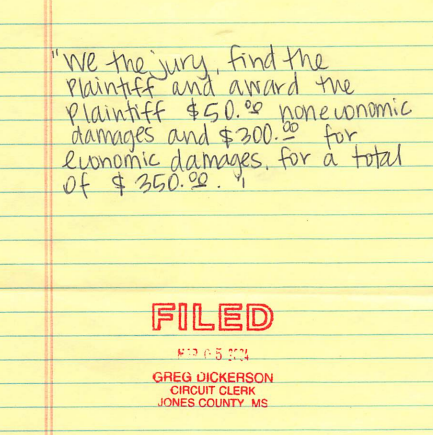 "We the jury, find the
Plaintiff and award the
Plaintiff $50.00 noneconomic
damages and $300.00 for
economic damages, for a total
of $350.00."
FILED
MAR 05 2024
GREG DICKERSON
CIRCUIT CLERK
JONES COUNTY MS